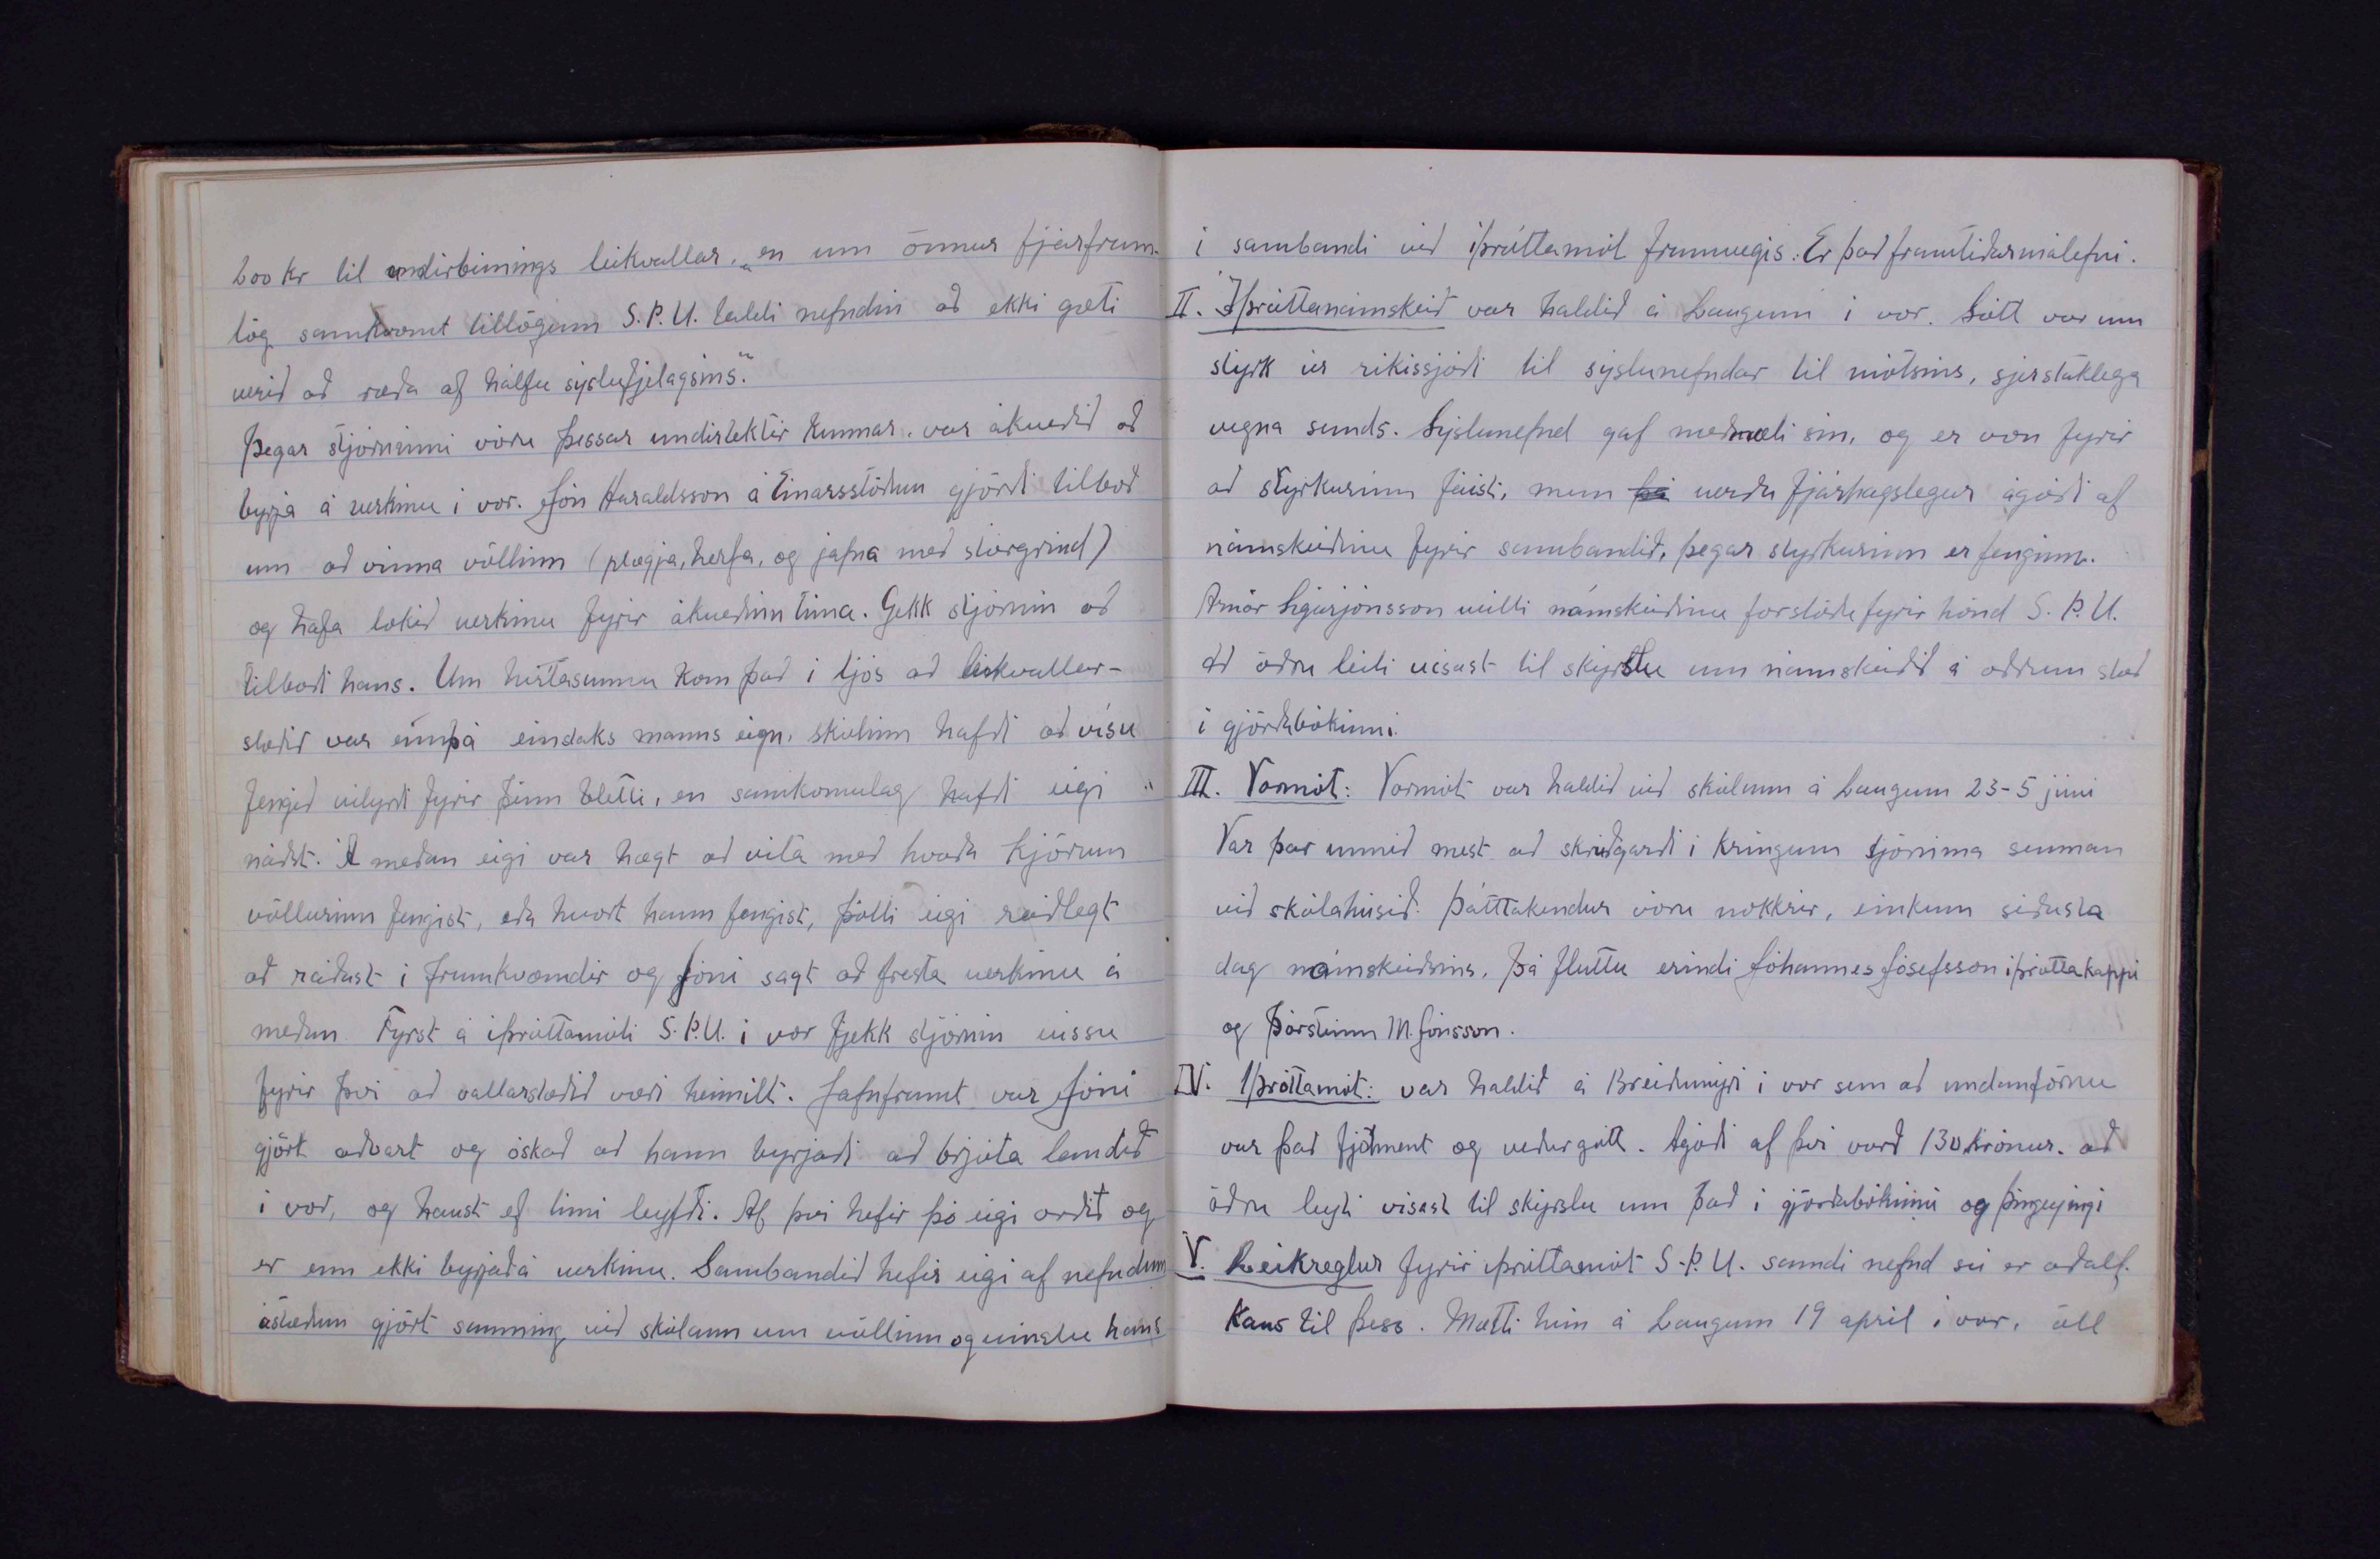 200 kr til undirbúnings leikvallar, „en um önnur fjárfram-
lög samkvæmt tillögum S.Þ.U. taldi nefndin að ekki gæti
verið að ræða af hálfu sýslufjelagsins“.
Þegar stjórninni vóru þessar undirtektir kunnar, var ákveðið að
byrja á verkinu í vor. Jón Haraldsson á Einarsstöðum gjörði tilboð
um að vinna völlinn (plægja, herfa, og jafna með slórgrind)
og hafa lokið verkinu fyrir ákveðinn tíma. Gekk stjórnin að
tilboði hans. Um hvítasunnu kom það í ljós að leikvallar-
stæðið var ennþá eindaks manns eign, skólinn hafði að vísu
fengið vilyrði fyrir þeim bletti, en samkomulag hafði eigi
náðst. Á meðan eigi var hægt að vita með hvaða kjörum
völlurinn fengist, eða hvort hann fengist, þótti eigi ráðlegt
að ráðast í framkvæmdir og Jóni sagt að fresta verkinu á
meðan. Fyrst á íþróttamóti S.Þ.U. í vor fjekk stjórnin vissu
fyrir því að vallarstæðið væri heimilt. Jafnframt var Jóni
gjört aðvart og óskað að hann byrjaði að brjóta landið
í vor, og haust ef tími leyfði. Af því hefir þó eigi orðið og
er enn ekki byrjað á verkinu. Sambandið hefir eigi af nefndum
ástæðum gjört samning við skólann um völlinn og vinslu hans
í sambandi við íþróttamót framvegis. Er það framtíðarmálefni.
II. Íþróttanámskeið var haldið á Laugum í vor. Sótt var um
styrk úr ríkissjóði til sýslunefndar til mótsins, sjerstaklega
vegna sunds. Sýslunefnd gaf meðmæli sín, og er von fyrir
að styrkurinn fáist, mun þá verða fjárhagslegur ágóði af
námskeiðinu fyrir sambandið, þegar styrkurinn er fenginn.
Arnór Sigurjónsson veitti námskeiðinu forstöðu fyrir hönd S.Þ.U.
Að öðru leiti vísast til skýrslu um námskeiðið á öðrum stað
í gjörðabókinni.
III. Vormót: Vormót var haldið við skólann á Laugum 23-5 júní
Var þar unnið mest að skrúðgarði í kringum tjörnina sunnan
við skólahúsið. Þátttakendur vóru nokkrir, einkum síðasta
dag námskeiðsins. Þá fluttu erindi Jóhannes Jósefsson íþróttakappi
og Þórsteinn M. Jónsson.
IV. Íþróttamót: var haldið á Breiðumýri í vor sem að undanförnu
var það fjölment og veður gott. Ágóði af því varð 130 krónur. að
öðru leyti vísast til skýrslu um það í gjörðabókinni og þingeyingi
V. Leikreglur fyrir íþróttamót S.Þ.U. samdi nefnd sú er aðalf.
kaus til þess. Mætti hún á Laugum 19 apríl í vor, öll